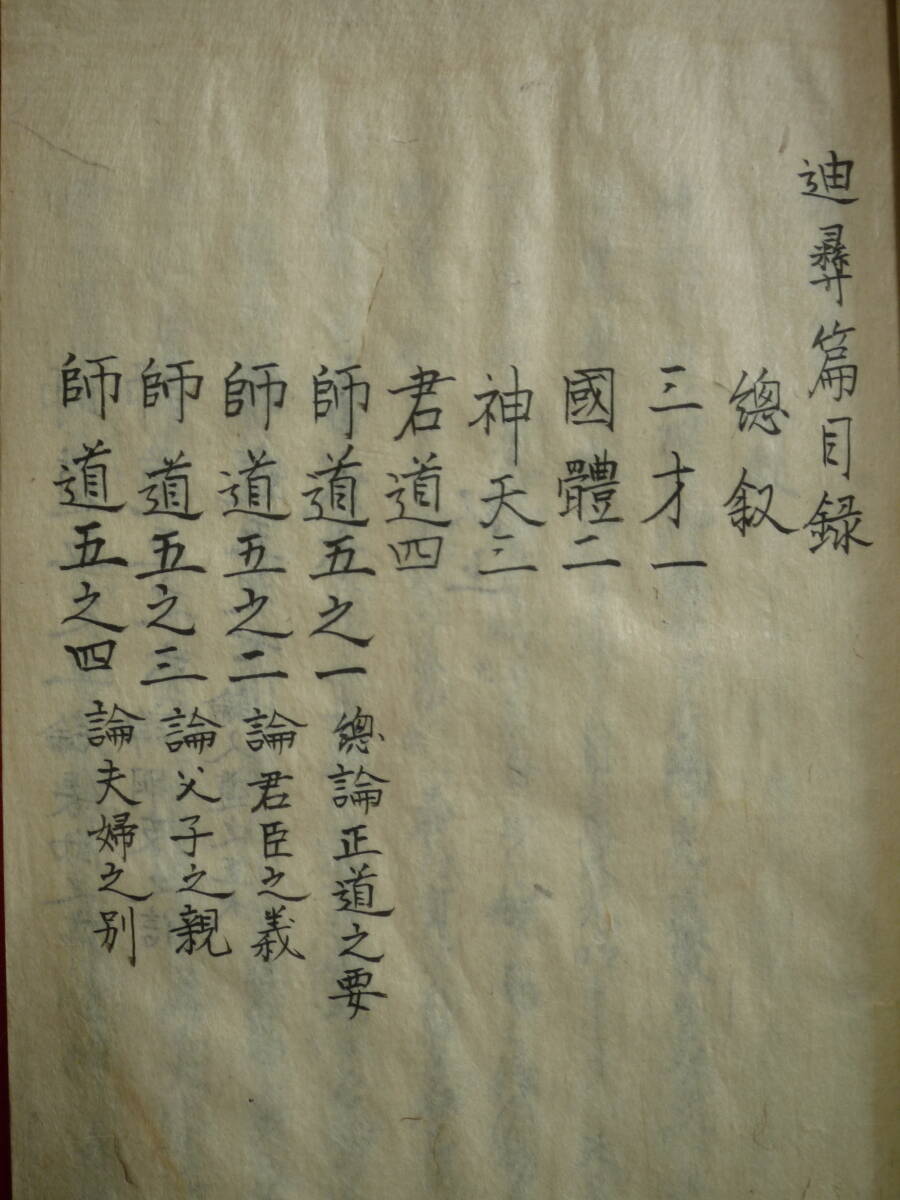 迪彝篇目録
總叙
三才一
國體二
神天三
君道四
師道五之一 總論正道之要
師道五之二 論君臣之義
師道五之三 論父子之親
師道五之四 論夫婦之別